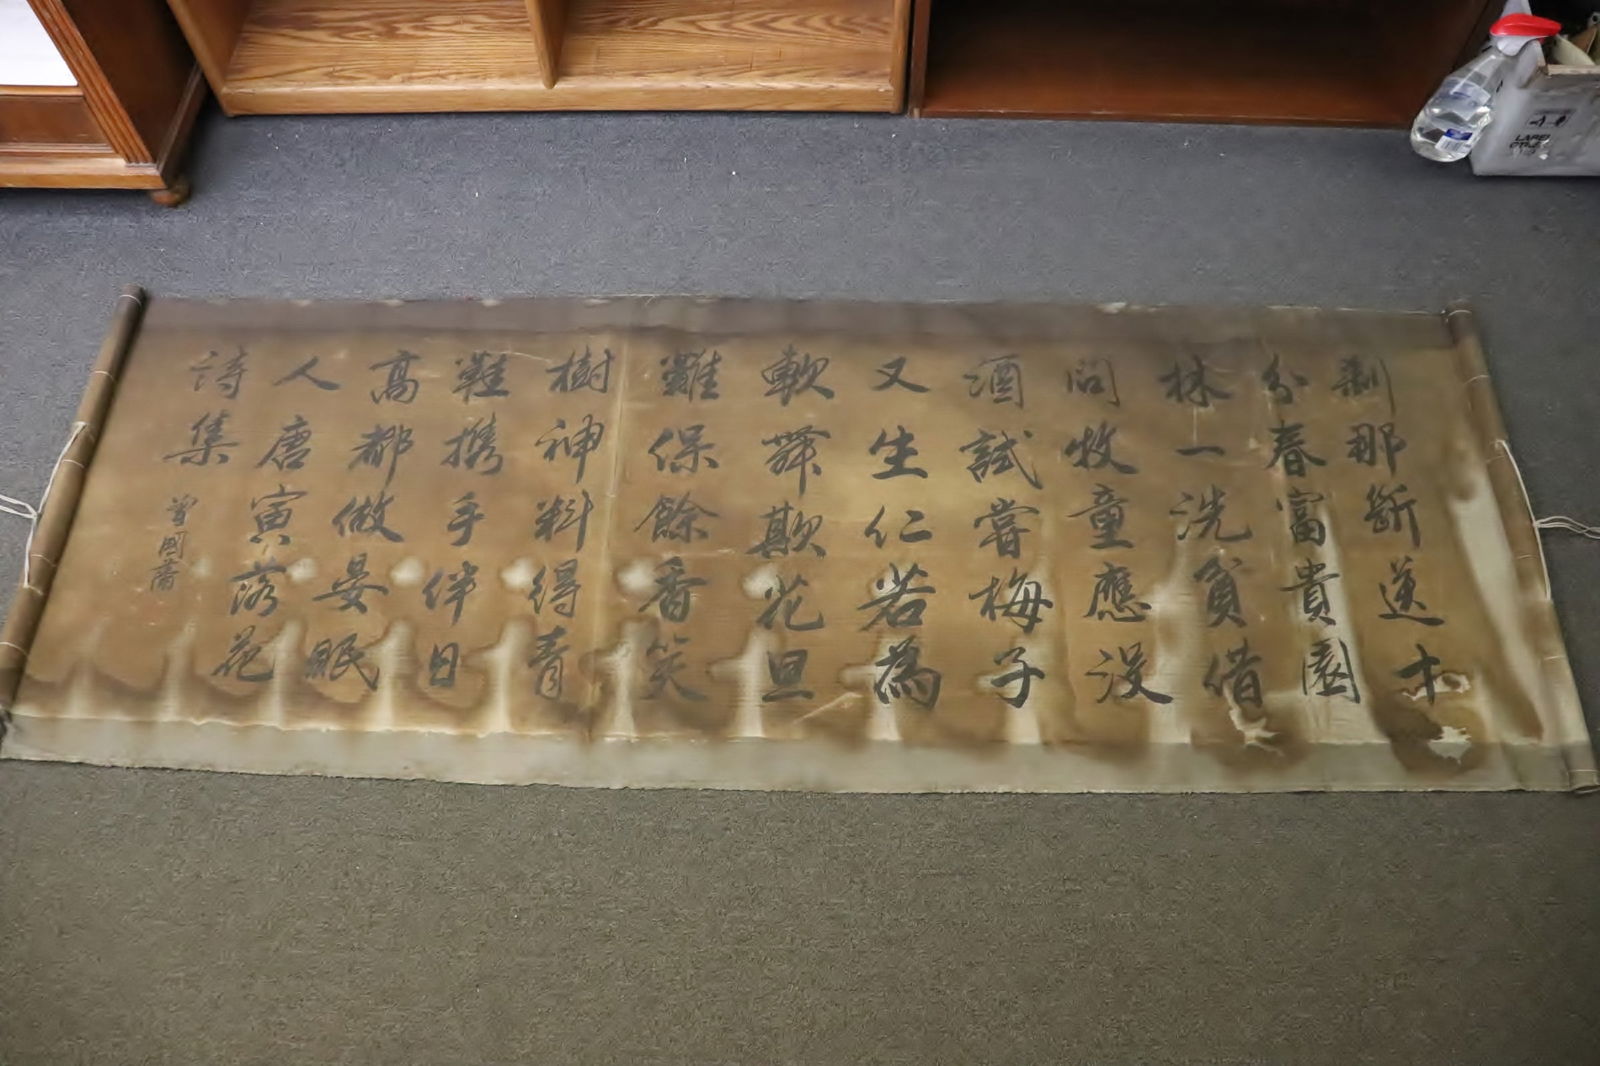 剎那斷送十
分春富貴園
林一洗貧借
問牧童應沒
酒試嘗梅子
又生仁若為
軟舞欺花旦
難保餘香笑
樹神料得青
鞋携手伴日
高都做晏眠
人唐寅落花
詩集
曾國藩